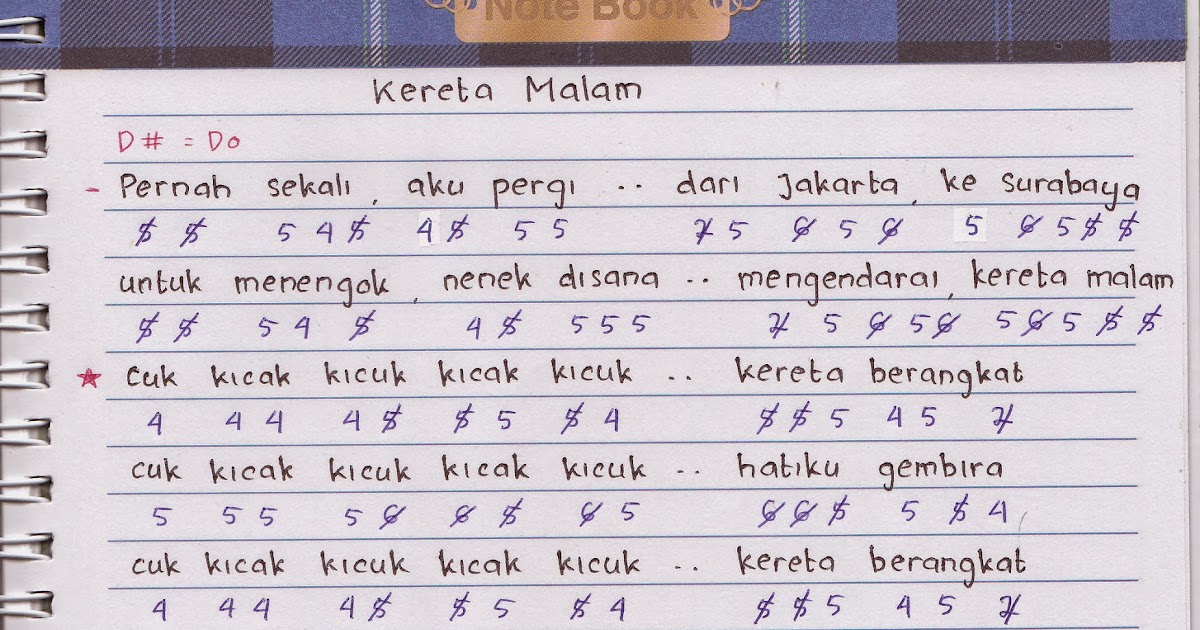 Note Book
Kereta Malam
D# = Do
- Pernah sekali, aku pergi .. dari Jakarta, ke Surabaya
5̸ 5̸ 5 4 5̸ 4 5̸ 5 5 7̸ 5 6̸ 5 6̸ 5 6̸ 5 5̸ 5̸
untuk menengok, nenek disana .. mengendarai, kereta malam
5̸ 5̸ 5 4 5̸ 4 5̸ 5 5 5 7̸ 5 6̸ 5 6̸ 5 6̸ 5 5̸ 5̸
★ cuk kicak kicuk kicak kicuk .. kereta berangkat
4 4 4 4 5̸ 5̸ 5 5̸ 4 5̸ 5̸ 5 4 5 7̸
cuk kicak kicuk kicak kicuk .. hatiku gembira
5 5 5 5 6̸ 6̸ 5̸ 6̸ 5 6̸ 6̸ 5̸ 5 5̸ 4
cuk kicak kicuk kicak kicuk .. kereta berangkat
4 4 4 4 5̸ 5̸ 5 5̸ 4 5̸ 5̸ 5 4 5 7̸